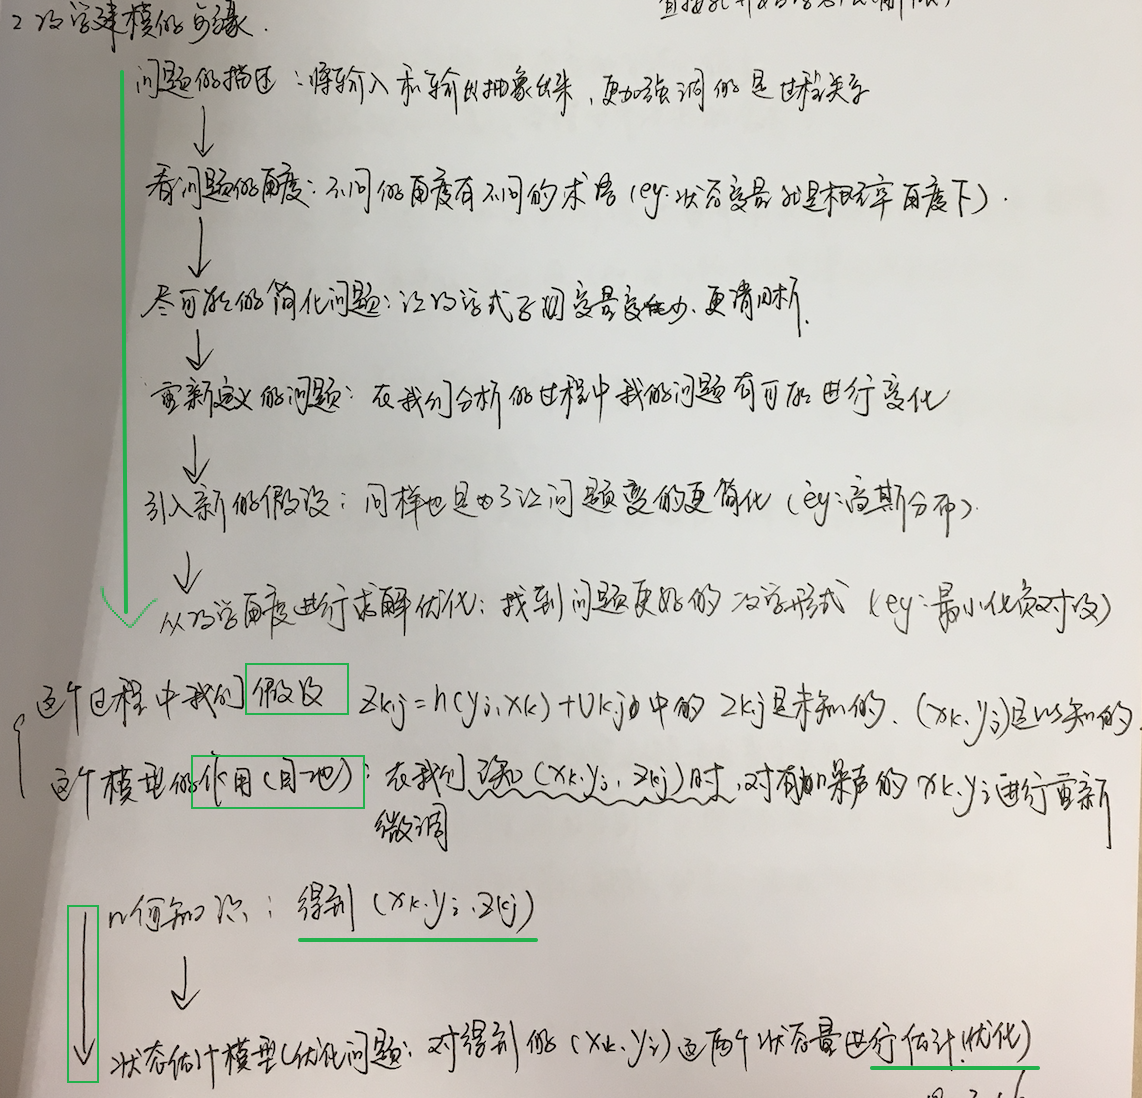 2 数学建模的步骤.
问题的描述：将输入和输出抽象出来，更加强调的是过程关系
看问题的角度：不同的角度有不同的术语（eg:状态变量就是概率角度下）.
尽可能的简化问题：让数学式子的变量变少，更清晰.
重新定义的问题：在我们分析的过程中我的问题有可能进行变化
引入新的假设：同样也是为了让问题变的更简化（eg:高斯分布）.
从数学角度进行求解优化：找到问题更好的数学形式（eg:最小化负对数）
这个过程中我们假设 zk,j=h(yj,xk)+vk,j 中的 zkj是未知的、(xk.yj)是以知的.
这个模型的作用(目地)：在我们已知(xk.yj,zkj)时,对有噪声的xk.yj进行重新
微调
几何知识：得到(xk.yj.zkj)
状态估计模型(优化问题)：对得到的(xk.yj)这两个状态量进行估计(优化)